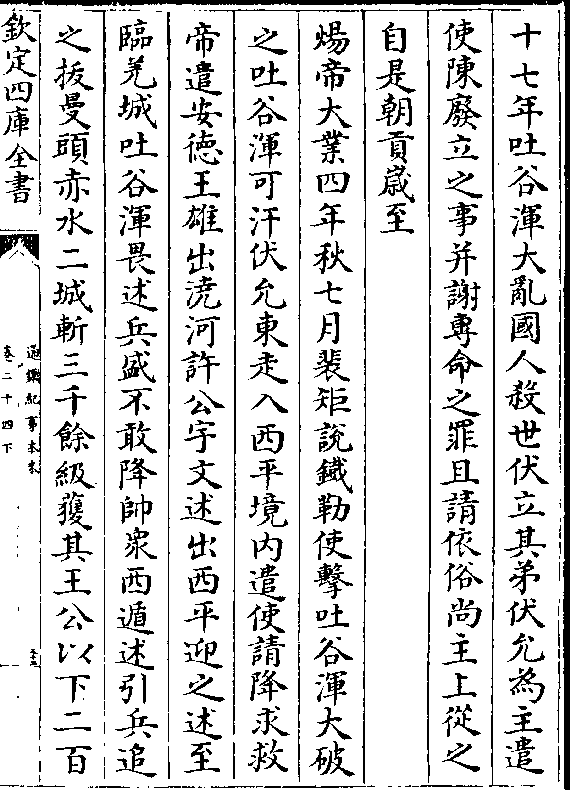 十七年吐谷渾大亂國人殺世伏立其弟伏允為主遣
使陳廢立之事并謝專命之罪且請依俗尚主上從之
自是朝貢歲至
煬帝大業四年秋七月裴矩說鐵勒使擊吐谷渾大破
之吐谷渾可汗伏允東走入西平境内遣使請降求救
帝遣安德王雄出澆河許公宇文述出西平迎之述至
臨羌城吐谷渾畏述兵盛不敢降帥衆西遁述引兵追
之拔曼頭赤水二城斬三千餘級獲其王公以下二百
欽定四庫全書
通鑑紀事本末
卷二十四下